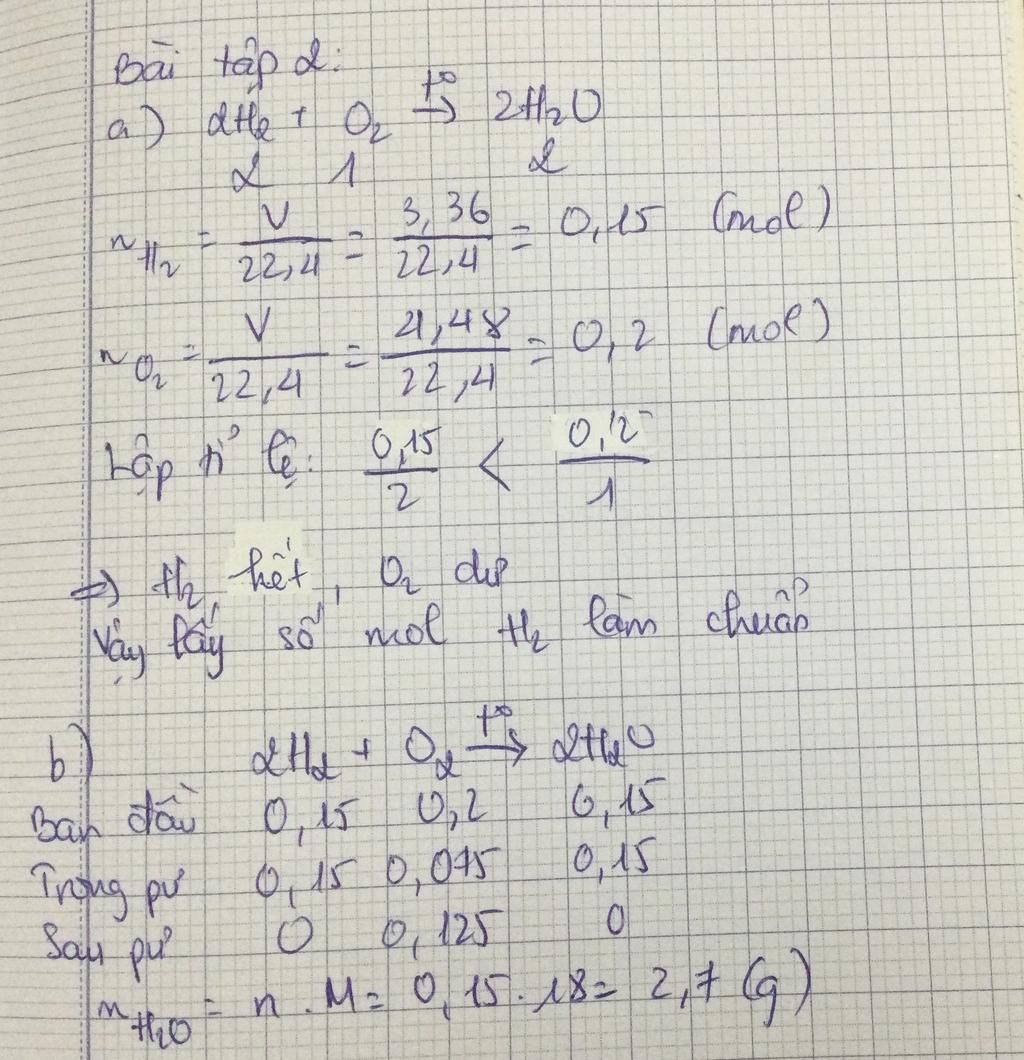 Bài tập 2:
a) 2H₂ + O₂ t° → 2H₂O
2 1 2
n H₂ = V/22,4 = 3,36/22,4 = 0,15 (mol)
n O₂ = V/22,4 = 4,48/22,4 = 0,2 (mol)
Lập tỉ lệ: 0,15/2 < 0,2/1
=> H₂ hết, O₂ dư
Vậy lấy số mol H₂ làm chuẩn
b) 2H₂ + O₂ t° → 2H₂O
Ban đầu 0,15 0,2 0,15
Trong pư 0,15 0,075 0,15
Sau pư 0 0,125 0
m H₂O = n . M = 0,15 . 18 = 2,7 (g)